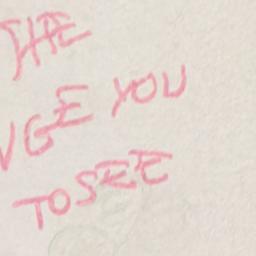 THE
NGE YOU
TO SEE